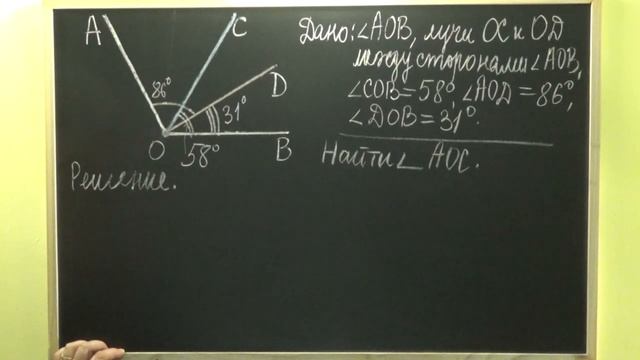 A
C
D
B
O
86°
31°
58°
Дано: ∠AOB, лучи OC и OD
между сторонами ∠AOB,
∠COB = 58°, ∠AOD = 86°,
∠DOB = 31°.
Найти ∠AOC.
Решение.